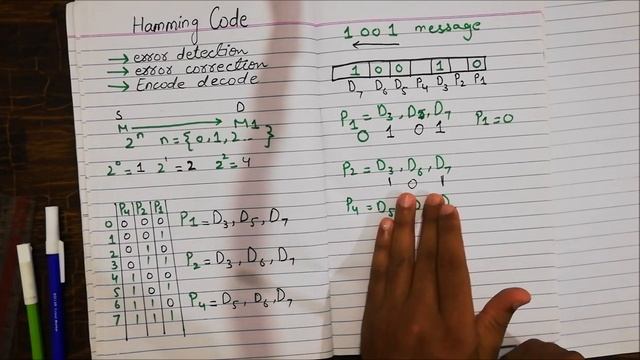 Hamming Code
→ error detection
→ error correction
→ Encode decode
S D
M → M1
2^n n = {0, 1, 2 ... }
2^0 = 1 2^1 = 2 2^2 = 4
P4 P2 P1
0 0 0 0
1 0 0 1
2 0 1 0
3 0 1 1
4 1 0 0
5 1 0 1
6 1 1 0
7 1 1 1
P1 = D3, D5, D7
P2 = D3, D6, D7
P4 = D5, D6, D7
1 0 0 1 message
←
1 0 0 1 0
D7 D6 D5 P4 D3 P2 P1
P1 = D3, D5, D7 P1 = 0
0 1 0 1
P2 = D3, D6, D7
1 0 1
P4 = D5